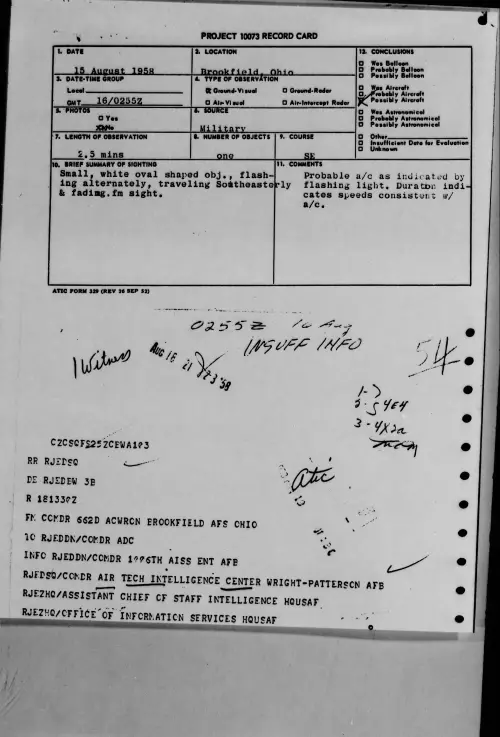 PROJECT 10073 RECORD CARD
1. DATE
15 August 1958
2. LOCATION
Brookfield, Ohio
12. CONCLUSIONS
Was Balloon
Probably Balloon
Possibly Balloon
Was Aircraft
Probably Aircraft
Possibly Aircraft
Was Astronomical
Probably Astronomical
Possibly Astronomical
Other
Insufficient Data for Evaluation
Unknown
3. DATE-TIME GROUP
Local
GMT 16/0255Z
4. TYPE OF OBSERVATION
Ground-Visual
Ground-Radar
Air-Visual
Air-Intercept Radar
5. PHOTOS
Yes
No
6. SOURCE
Military
7. LENGTH OF OBSERVATION
2.5 mins
8. NUMBER OF OBJECTS
one
9. COURSE
SE
10. BRIEF SUMMARY OF SIGHTING
Small, white oval shaped obj., flash-
ing alternately, traveling Southeasterly
& fading.fm sight.
11. COMMENTS
Probable a/c as indicated by
flashing light. Duraton indi-
cates speeds consistent w/
a/c.
ATIC FORM 329 (REV 26 SEP 52)
0255Z 16 Aug
INSUFF INFO
1 Witness
AUG 18 21 23 '58
54
1-
2-5 4E4
3-4X2a
CZCSQFS252CEWA103
RR RJEDSQ
DE RJEDEW 3B
R 181330Z
FM COMDR 662D ACWRON BROOKFIELD AFS OHIO
TO RJEDDN/COMDR ADC
INFO RJEDDN/COMDR 1006TH AISS ENT AFB
RJEDSQ/COMDR AIR TECH INTELLIGENCE CENTER WRIGHT-PATTERSON AFB
RJEZHQ/ASSISTANT CHIEF OF STAFF INTELLIGENCE HQUSAF
RJEZHQ/OFFICE OF INFORMATION SERVICES HQUSAF
Atic